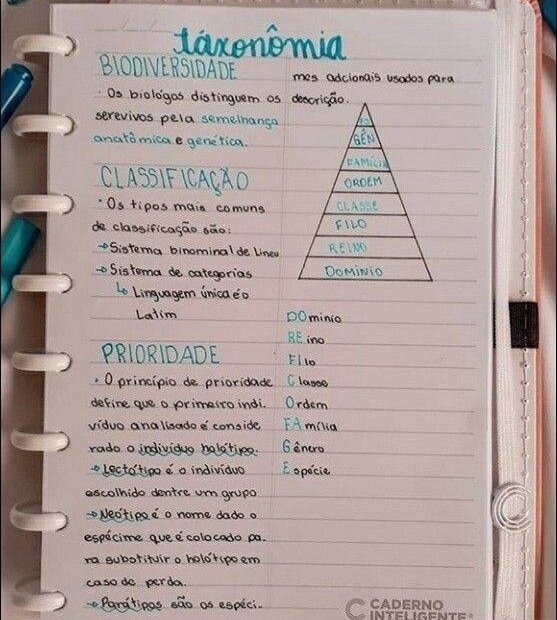 táxonômia
BIODIVERSIDADE
· Os biológos distinguem os
serevivos pela semelhança
anatômica e genética.
CLASSIFICAÇÃO
· Os tipos mais comuns
de classificação são:
→ Sistema binominal de Lineu
→ Sistema de categorias
↳ Linguagem única é o
Latim
PRIORIDADE
· O princípio de prioridade
define que o primeiro indi.
víduo analisado é conside
rado o indivíduo holótipo.
→ Lectótipo é o indivíduo
escolhido dentre um grupo
→ Neótipo é o nome dado o
espécime que é colocado pa.
ra substituir o holótipo em
caso de perda.
→ Parátipos são os espéci-
mes adcionais usados para
descrição.
ES
GÊN
FAMÍLIA
ORDEM
CLASSE
FILO
REINO
DOMINIO
DOminio
REino
FIlo
Classe
Ordem
FAmília
Gênero
Espécie
CADERNO
INTELIGENTE®